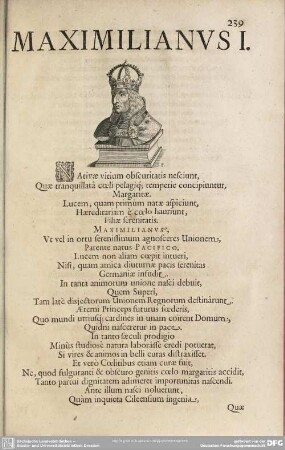 239
MAXIMILIANVS I.
NAtivæ vitium obscuritatis nesciunt,
Quæ tranquillatâ cœli pelagiq; temperie concipiuntur,
Margaritæ.
Lucem, quam primum natæ aspiciunt,
Hæreditariam è cœlo hauriunt,
Filiæ serenitatis.
MAXIMILIANUS,
Ut vel in ortu serenissimum agnosceres Unionem,
Parente natus PACIFICO,
Lucem non aliam cœpit intueri,
Nisi, quam amica diuturnæ pacis serenitas
Germaniæ infudit.
In tanta animorum unione nasci debuit,
Quem Superi,
Tam latè disjectorum Unionem Regnorum destinârunt,
Æterni Princeps futurus fœderis,
Quo mundi utriusq; cardines in unam coirent Domum,
Quidni nasceretur in pace.
In tanto sæculi prodigio
Minùs studiosè natura laborâsse credi poterat,
Si vires & animos in belli curas distraxisset.
Et verò Cœlitibus etiam curæ fuit,
Ne, quod fulguranti & obscuro genitis cœlo margaritis accidit,
Tanto partui dignitatem adimeret importunitas nascendi.
Ante illum nasci noluerunt,
Quàm inquieta Cileensium ingenia,
Quæ